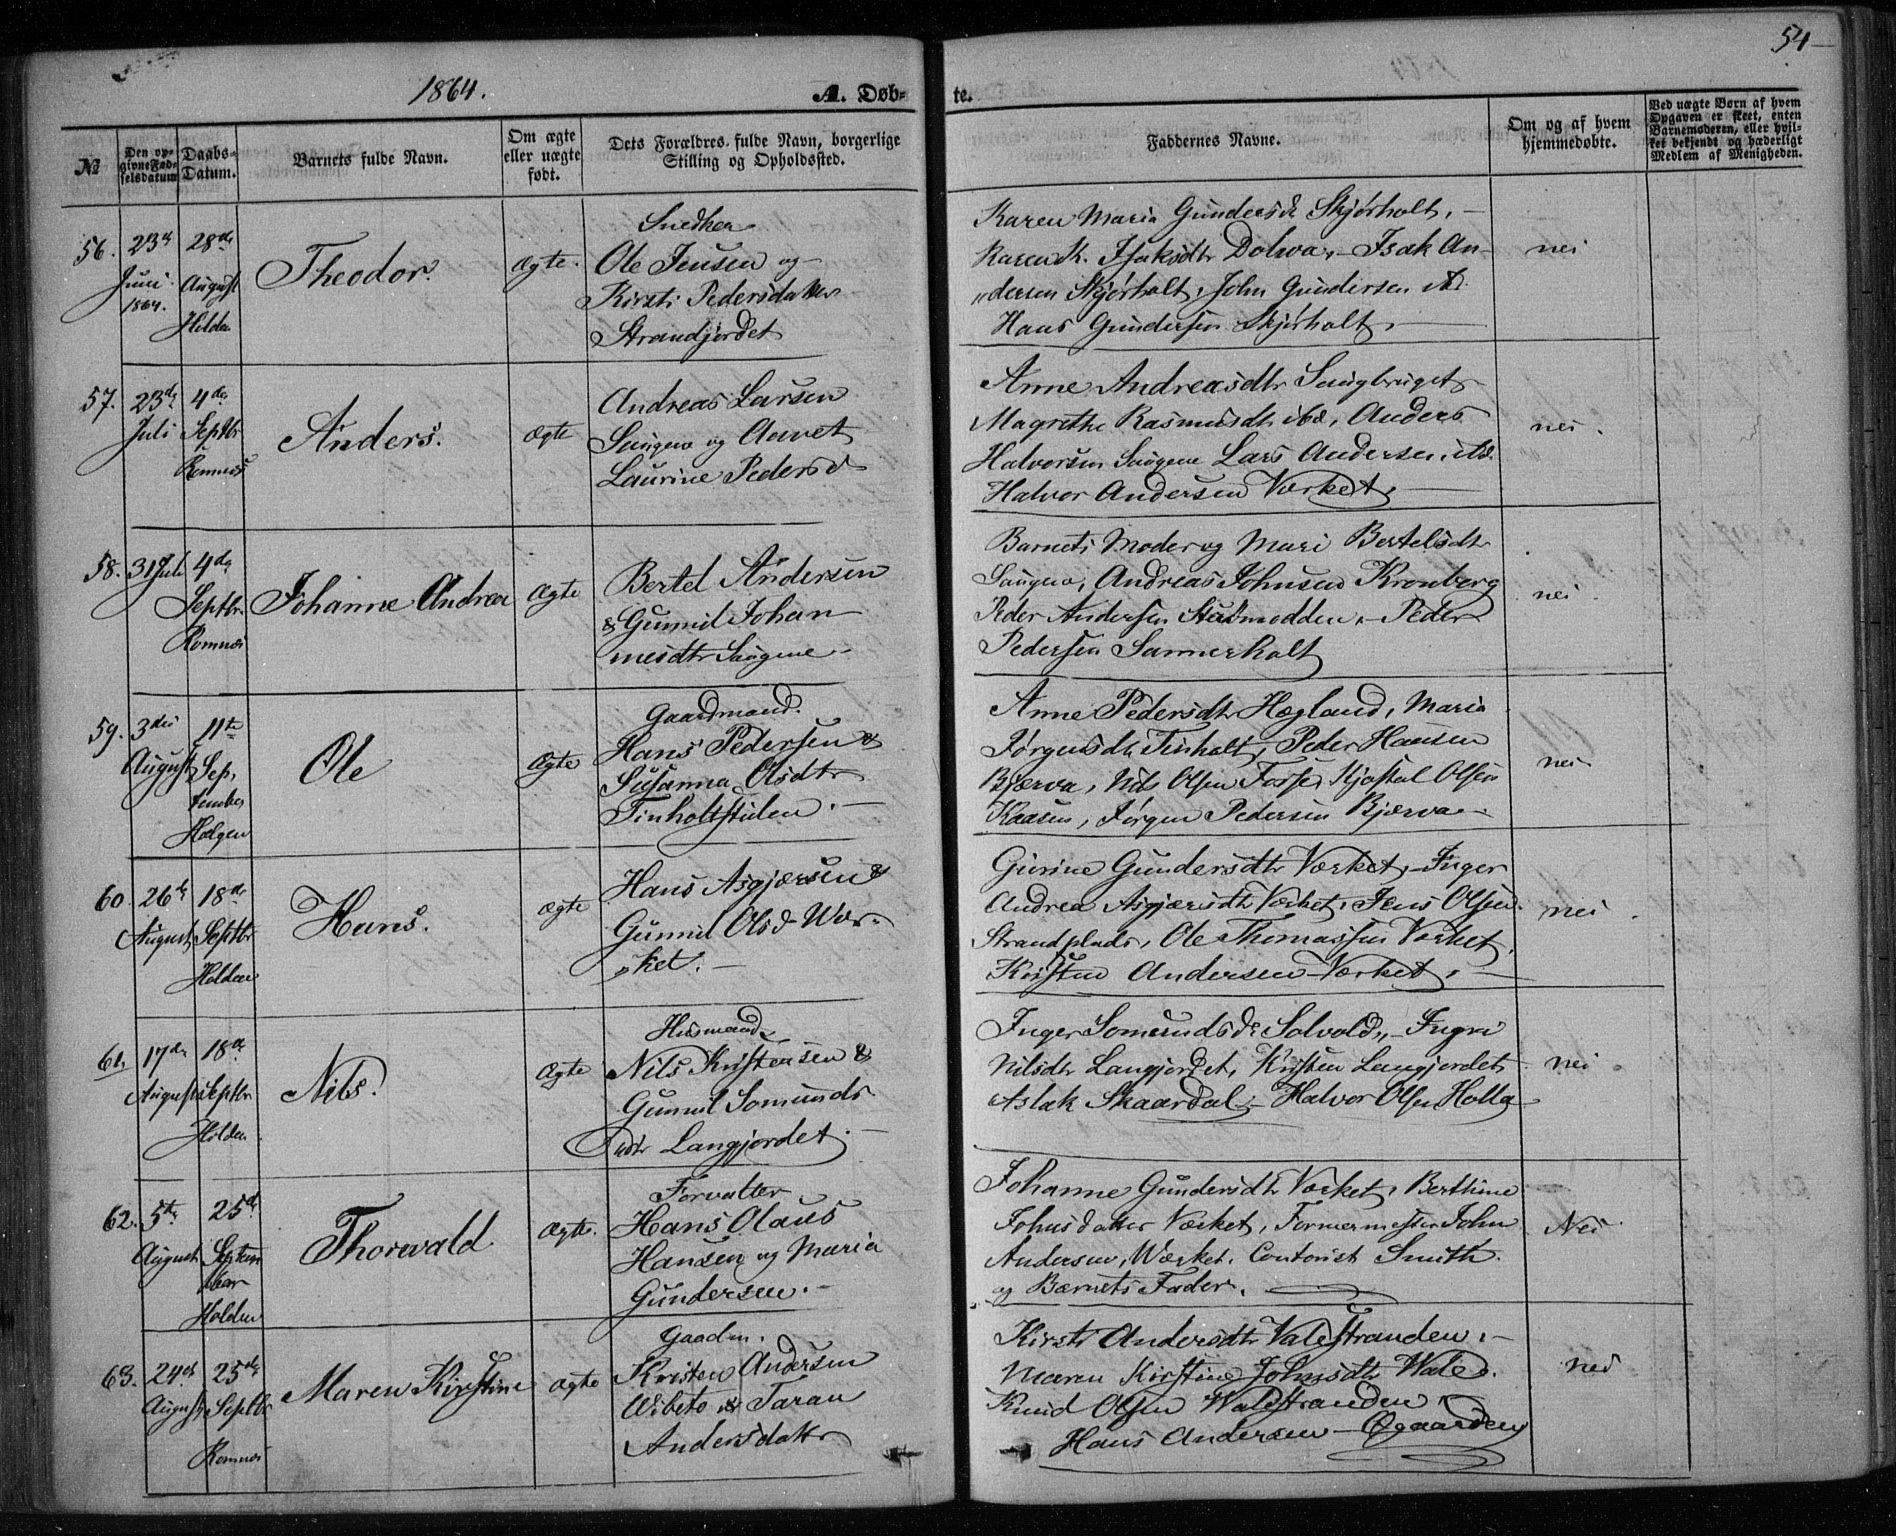 54
1864.
A. Døb-
te.
№
Den op-
givne Fød-
selsdatum
Daabs-
Datum.
Barnets fulde Navn.
Om ægte
eller uægte
født.
Dets Forældres fulde Navn, borgerlige
Stilling og Opholdssted.
Faddernes Navne.
Om og af hvem
hjemmedøbte.
Ved uægte Børn af hvem
Opgaven er skeet, enten
Barnemoderen, eller hvil-
ket bekjendt og hæderligt
Medlem af Menigheden.
56.
23d
Juni
1864.
28de
August
Holden
Theodor.
Ægte.
Snedker
Ole Jensen og
Kirsti Pedersdatter
Strandjordet
Karen Maria Gundersdr Skjørholt,
Karen K. Isaksdtr Dolva, - Isak An-
dersen Skjørholt, John Gundersen ibd.
Hans Gundersen Skjørholt,
nei
57.
23de
Juli
4de
Septbr
Romnæs
Anders.
Ægte
Andreas Larsen
Saugene og Anne
Laurine Pedersd
Anne Andreasdtr Saugbruget
Magrethe Rasmusdtr ibd, Anders
Halvorsen Saugene Lars Andersen, ibd.
Halvor Andersen Værket,
nei.
58.
31 Juli
4de
Septbr.
Romnæs
Johanne Andrea
Ægte
Bertel Andersen
& Gunnil Johan-
nesdtr Saugene
Barnets Moder og Mari Bertelsdtr
Saugene, Andreas Johnsen Kronberg
Peder Andersen, - Peder
Pedersen Sannerholt
nei.
59.
3die
August
11te
Sep-
tember
Helgen
Ole
Ægte
Gaardmand.
Hans Pedersen &
Susanna Olsdtr
Tinholtstulen.
Anne Pedersdtr Hægland, Maria
Jørgensdtr Tinholt, Peder Hansen
Bjærva, Nils Olsen, Kjøstul Olsen
Kaasen, Jørgen Pedersen Bjærva
nei
60.
26de
August
18de
Septbr
Holden
Hans.
Ægte
Hans Asgjærsen &
Gunnil Olsd Vær-
ket.
Gurine Gundersdtr Værket, Inger
Andrea Asgjærsdtr Værket, Jens Olsen
Strandplads, Ole Thomassen Værket,
Kristen Andersen Værket,
nei.
61.
17de
August
18de
Septbr.
Holden
Nils.
Ægte
Husmand
Nils Kristensen &
Gunnil Somunds-
datr Langjordet.
Inger Somundsdr Solvold, - Ingri
Nilsdtr Langjordet, Kristen Langjordet
Aslak Skaardal, - Halvor Olsen Holla
nei.
62.
5te
August
25de
Septem-
ber
Holden
Thorvald
Ægte.
Forvalter
Hans Olaus
Hansen og Maria
Gundersen.
Johanne Gundersdtr Værket, Berthine
Johnsdatter Værket, Formermester John
Andersen, Værket, Contorist Smith
og Barnets Fader.
Nei
63.
24de
August
25de
Septbr
Romnæs
Maren Kirstine
Ægte
Gaardm.
Kristen Andersen
Wibeto & Taran
Andersdatter
Kirsti Andersdtr Valestranden,
Maren Kirstine Johnsdtr Vale.
Knud Olsen Valestranden,
Hans Andersen Øgaarden
nei